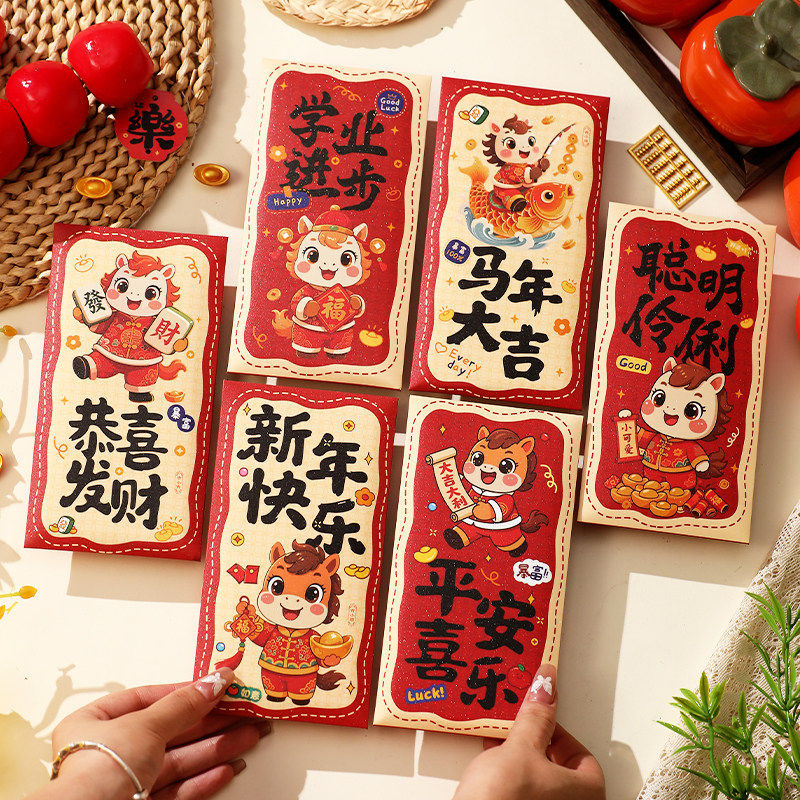 樂
學业
进步
Good
Luck
Happy
福
马年
大吉
暴富
100%
Every
day!
聪明
伶俐
Good
小可爱
發
財
恭喜
发财
暴富
新年
快乐
福
如意
大吉大利
暴富!!
平安
喜乐
Luck!